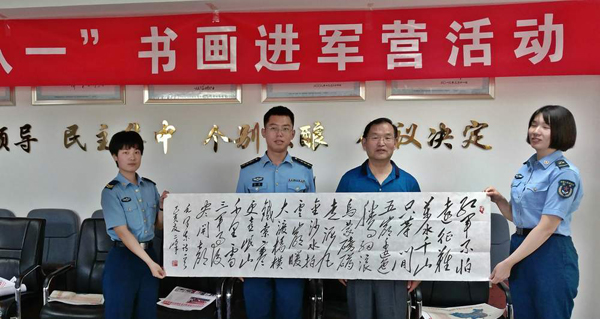 八一” 书画进军营活动
领导 民主 中 个别 酿 议决定
红军不怕
远征难
万水千山
只等闲
五岭逶迤
腾细浪
乌蒙磅礴
走泥丸
金沙水拍
云崖暖
大渡桥横
铁索寒
更喜岷山
千里雪
三军过后
尽开颜